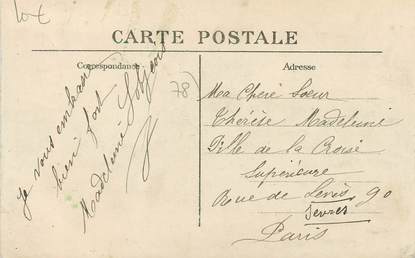 10€
CARTE POSTALE
Correspondance
Adresse
Je vous embrasse
bien fort
Madeleine
78)
Ma Chère Soeur
Thérèse Madeleine
Fille de la Croix
Supérieure
Rue de Sèvres 90
Sevres
Paris